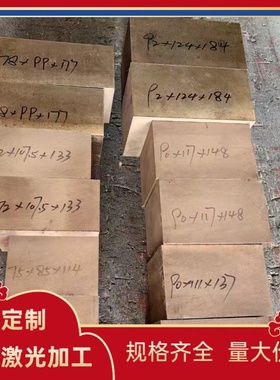 78×99×177
8×99×177
2×107.5×133
2×107.5×133
75×85×114
92×124×184
92×124×184
90×117×148
90×117×148
90×111×137
定制
激光加工
规格齐全 量大